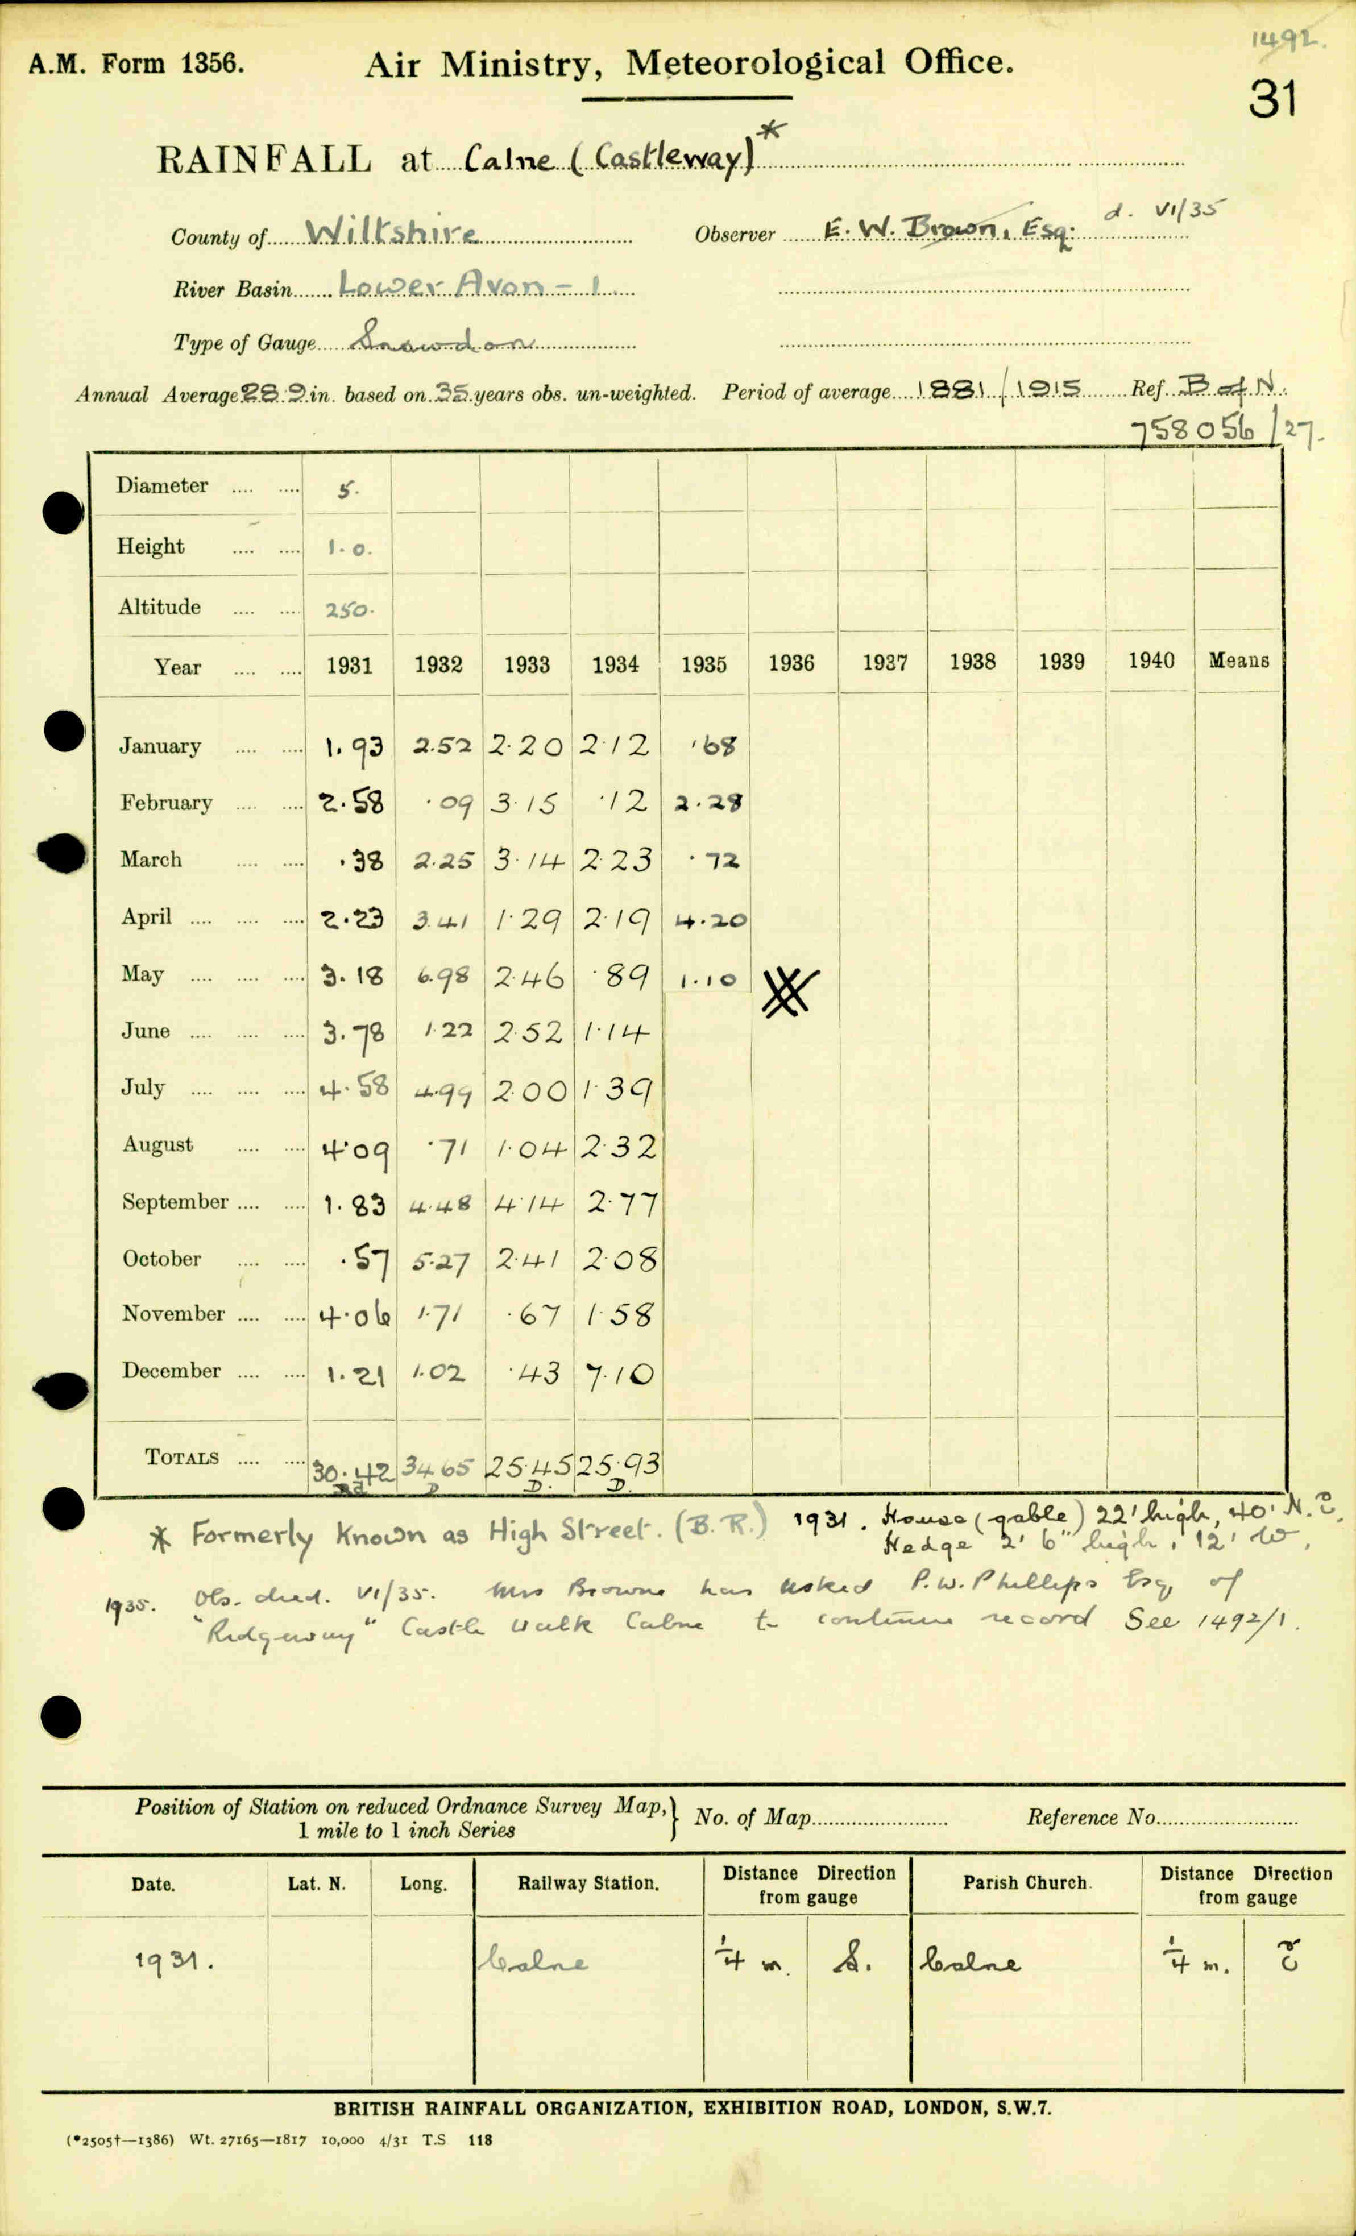 1492.
A.M. Form 1356. Air Ministry, Meteorological Office.
31
RAINFALL at Calne (Castleway)*
County of Wiltshire Observer E. W. Brown, Esq. d. VI/35
River Basin Lower Avon - 1
Type of Gauge Snowdon
Annual Average 28.9 in. based on 35 years obs. un-weighted. Period of average 1881/1915 Ref. B of N.
758056/27.
Diameter .... .... 5.
Height .... .... 1.0.
Altitude .... .... 250.
Year .... .... 1931 1932 1933 1934 1935 1936 1937 1938 1939 1940 Means
January .... .... 1.93 2.52 2.20 2.12 .68
February .... .... 2.58 .09 3.15 .12 2.28
March .... .... .38 2.25 3.14 2.23 .72
April .... .... .... 2.23 3.41 1.29 2.19 4.20
May .... .... .... 3.18 6.98 2.46 .89 1.10
June .... .... .... 3.78 1.22 2.52 1.14
July .... .... .... 4.58 4.99 2.00 1.39
August .... .... 4.09 .71 1.04 2.32
September .... .... 1.83 4.48 4.14 2.77
October .... .... .57 5.27 2.41 2.08
November .... .... 4.06 1.71 .67 1.58
December .... .... 1.21 1.02 .43 7.10
TOTALS .... .... 30.42 34.65 25.45 25.93
D D. D.
* Formerly Known as High Street. (B.R.) 1931. House (gable) 22' high, 40' N.E.
Hedge 2' 6" high, 12' W.
1935. Obs. died. VI/35. Mrs Browne has asked P.W. Phillips Esq of
"Ridgeway" Castle Walk Calne to continue record See 1492/1.
Position of Station on reduced Ordnance Survey Map,} No. of Map Reference No.
1 mile to 1 inch Series
Date. Lat. N. Long. Railway Station. Distance Direction from gauge Parish Church. Distance Direction from gauge
1931. Calne 1/4 m. S. Calne 1/4 m. E
BRITISH RAINFALL ORGANIZATION, EXHIBITION ROAD, LONDON, S.W.7.
(*2505†—1386) Wt. 27165—1817 10,000 4/31 T.S 118